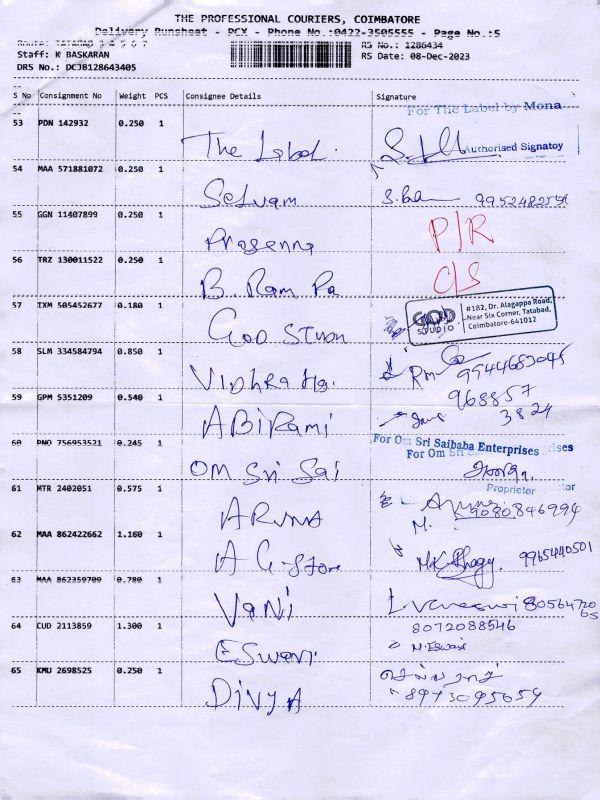 THE PROFESSIONAL COURIERS, COIMBATORE
Delivery Runsheet - PCX - Phone No.:0422-3505555 - Page No.:5
Staff: K BASKARAN
RS No.: 1286434
DRS No.: DCJB128643405
RS Date: 08-Dec-2023
S No Consignment No Weight PCS Consignee Details Signature
For The Label by Mona
53 PDN 142932 0.250 1 The Label
Authorised Signatoy
54 MAA 571881072 0.250 1 Selvam
55 GGN 11407899 0.250 1 Prasenna P/R
56 TRZ 130011522 0.250 1 B. Ram Pa C/S
GOD STUDIO
#182, Dr. Alagappa Road,
Near Six Corner, Tatabad,
Coimbatore-641012
57 IXM 505452677 0.180 1 God Stuon
58 SLM 334584794 0.850 1 9944683045
968857
59 GPM 5351209 0.540 1 ABiRami 3824
For Om Sri Saibaba Enterprises
60 PNQ 756953521 0.245 1 OM Sri Sai
Proprietor
61 MTR 2402051 0.575 1 ARUNA 9080846994
M.
62 MAA 862422662 1.160 1 A G-Store 9965440501
63 MAA 862359709 0.780 1 Vani
64 CUD 2113859 1.300 1 ESwari 8072088546
M. Eswari
65 KMU 2698525 0.250 1 DIVYA
8973095659